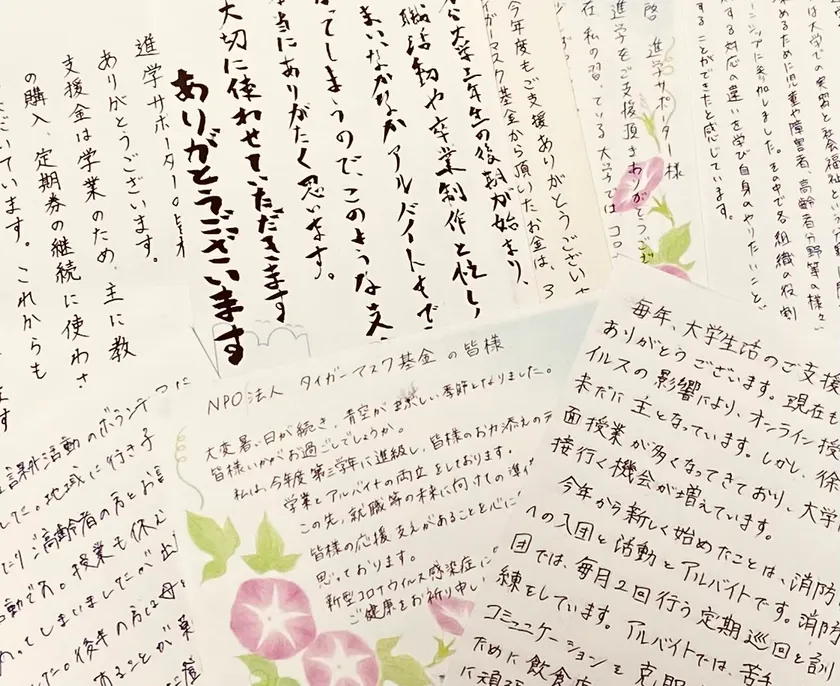 進学サポーターの皆様
ありがとうございます。
支援金は学業のため、主に教
の購入、定期券の継続に使わさ
ています。これからも
大切に使わせていただきます
ありがとうございます
当にありがたく思います。
ってしまうので、このような支
まいなかなかアルバイトもで
職活動や卒業制作と忙し
ら大学三年生の後期が始まり、
今年度もご支援ありがとうござい
イガーマスク基金から頂いたお金は、
啓 進学サポーター様
進学をご支援頂きありがとうござ
在私の習っている大学では
は大学での実習と社会福祉
ーンシップに参加しました。その中で各組織の役割
めるために児童や障害者、高齢者分野等の様々
する対応の違いを学び自身のやりたいこと、
することができたと感じています。
NPO法人 タイガーマスク基金 の皆様
大変暑い日が続き、青空がまぶしい季節となりました。
皆様いかがお過ごしでしょうか。
私は、今年度第三学年に進級し、皆様のお力添えの
学業とアルバイトの両立をしております。
この先、就職等の未来に向けての準
皆様の応援、支えがあることを心に
思っております。
新型コロナウイルス感染症に
ご健康をお祈り申し
毎年、大学生活のご支援
ありがとうございます。現在
イルスの影響により、オンライン授
未だに主となっています。しかし、徐
面授業が多くなってきており、大学
接行く機会が増えています。
今年から新しく始めたことは、消防
への入団と活動とアルバイトです。消防
団では、毎月2回行う定期巡回と訓
練をしています。アルバイトでは、苦手
コミュニケーションを克服
ために飲食店
に頑張
課外活動のボランティ
した。地域に行き子
たりご高齢者の方とお話
動であ。授業も休
わってしまいましたが
た。後半の方は
あることが